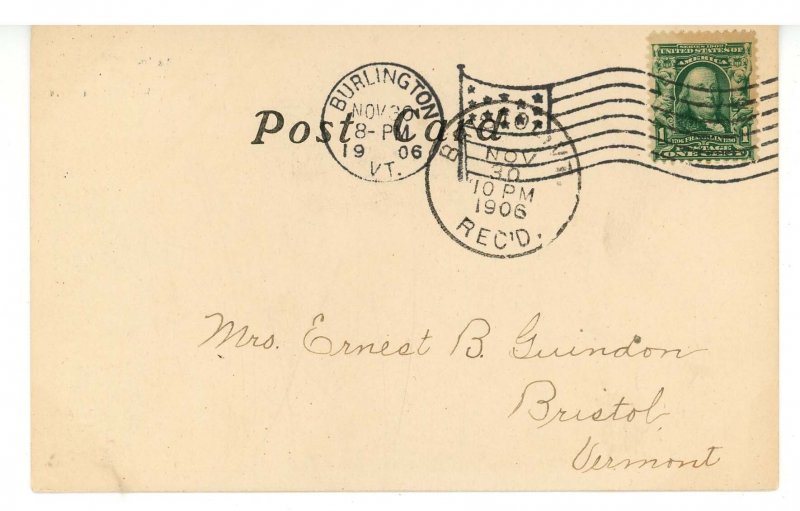 SERIES 1902
UNITED STATES OF
AMERICA
1 FRANKLIN 1
POSTAGE
ONE CENT
BURLINGTON
NOV 30
8-PM
19 06
VT.
Post Card
NOV
30
10 PM
1906
REC'D.
Mrs. Ernest B. Guindon
Bristol
Vermont